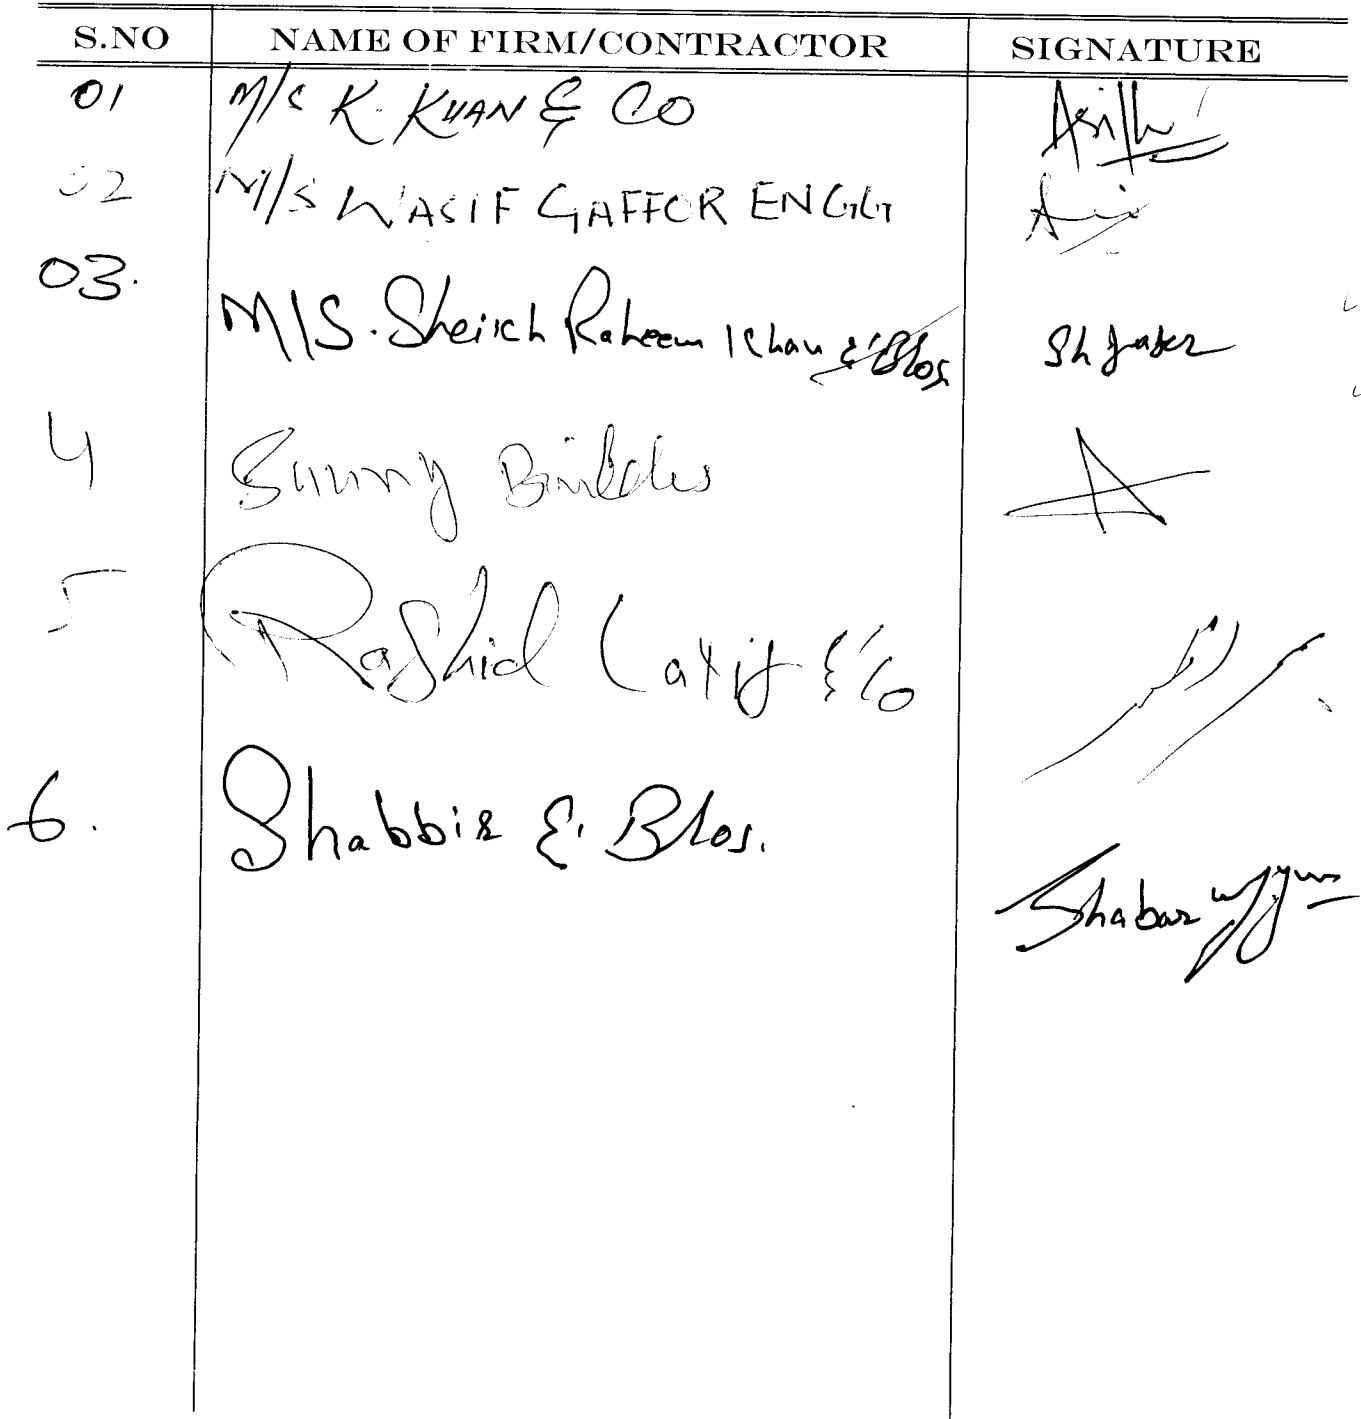 S.NO NAME OF FIRM/CONTRACTOR SIGNATURE
01 M/S K. KHAN & CO
02 M/S WASIF GAFFOR ENGG
03. M/S. Sheikh Raheem Khan & Bros.
4 Sunny Builders
5 Rashid Latif & Co
6. Shabbir & Bros.